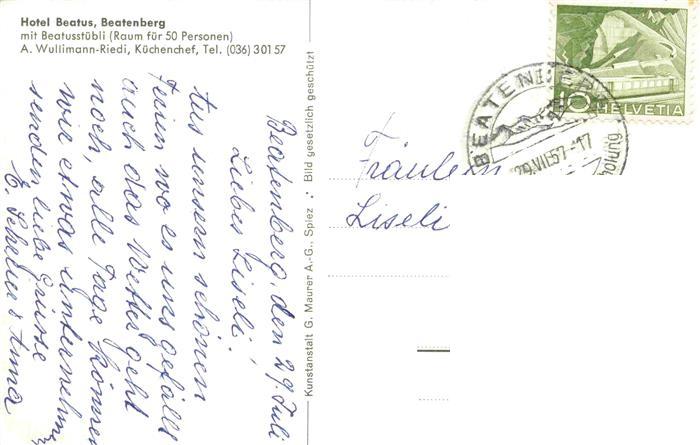 Hotel Beatus, Beatenberg
mit Beatusstübli (Raum für 50 Personen)
A. Wullimann-Riedi, Küchenchef, Tel. (036) 3 01 57
Beatenberg, den 29. Juli
Liebes Liseli!
tus unsern schönen
Ferien wo es uns gefällt
auch das Wetter geht
noch, alle Tage können
wir etwas unternehm
senden liebe Grüsse
E. & Anna
Kunstanstalt G. Maurer A.-G., Spiez Bild gesetzlich geschützt
Fräulein
Liseli
10 HELVETIA
BEATENBERG
29.VII.57.-17
holung